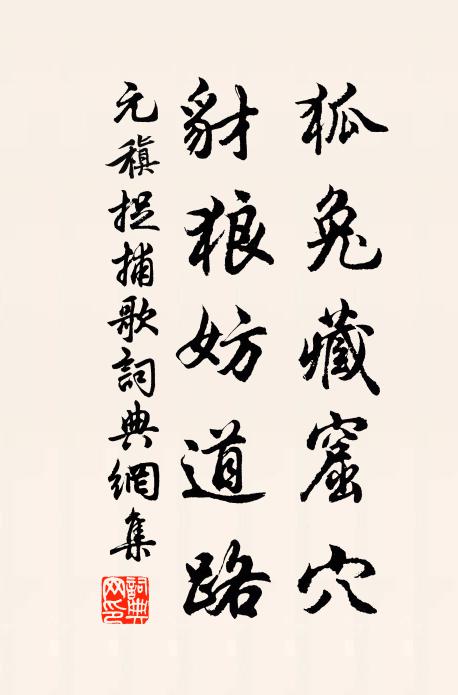 狐兔藏窟穴
豺狼妨道路
元稹捉捕歌詞典網集
詞典网印